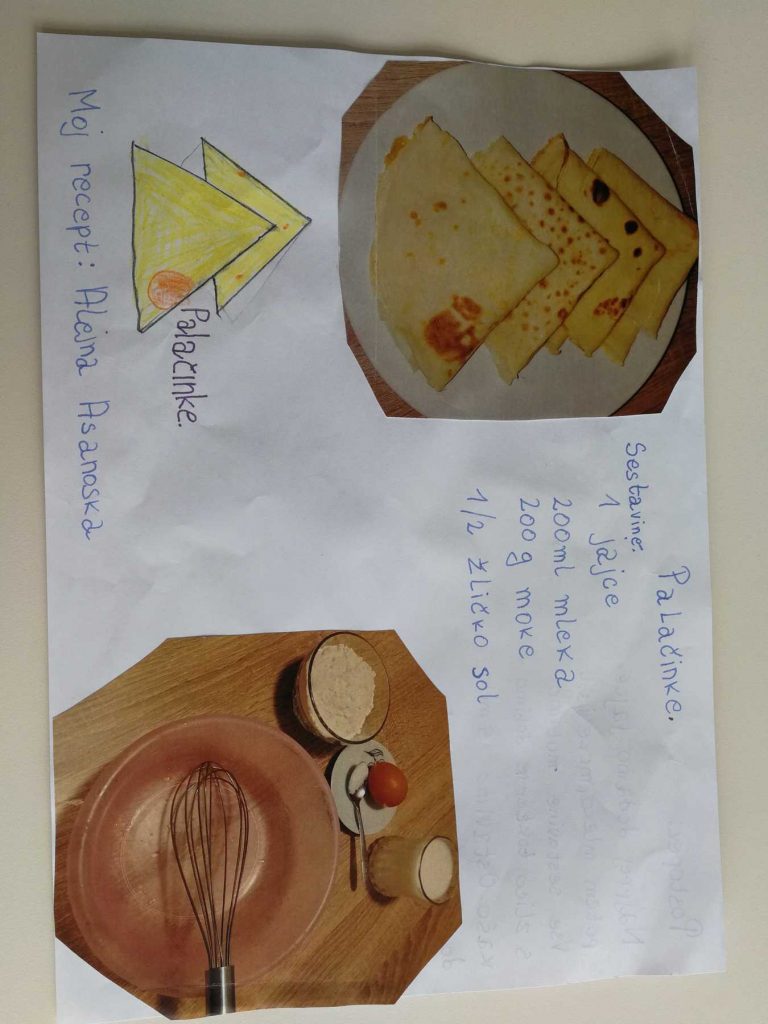 Palačinke.
Sestavine:
1 jajce
200ml mleka
200 g moke
1/2 žličko sol
Palačinke.
Moj recept: Alejna Asanoska